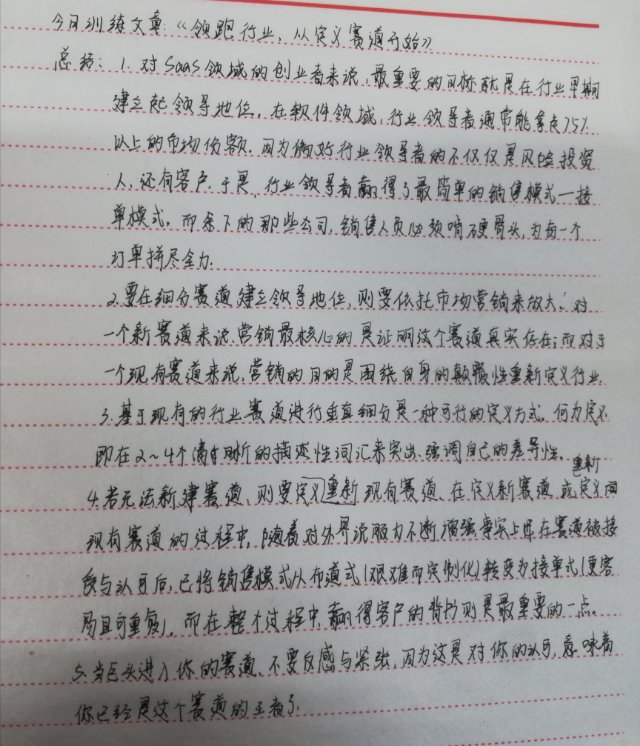 今日训练文章：《领跑行业，从定义赛道开始》
总结：1. 对SaaS领域的创业者来说，最重要的目标就是在行业早期
建立起领导地位。在软件领域，行业领导者通常能拿走75%
以上的市场份额，因为偏好行业领导者的不仅仅是风险投资
人，还有客户。于是，行业领导者赢得了最简单的销售模式—接
单模式。而余下的那些公司，销售人员必须啃硬骨头，为每一个
订单拼尽全力.
2.要在细分赛道建立领导地位，则要依托市场营销来放大；对
一个新赛道来说，营销最核心的是证明这个赛道真实存在；而对于
一个现有赛道来说，营销的目的是围绕自身的颠覆性重新定义行业.
3.基于现有的行业赛道进行垂直细分是一种可行的定义方式。何为定义.
即在2~4个清晰的描述性词汇来突出、强调自己的差异性。
4.若无法新建赛道，则要定义重新现有赛道。在定义新赛道或定义
重新
现有赛道的过程中，随着对外界说服力不断增强事实上即在赛道被接
受与认可后，已将销售模式从布道式(艰难而定制化)转变为接单式(更容
易且可重复)，而在整个过程中，赢得客户的背书则是最重要的一点。
5.当巨头进入你的赛道，不要反感与紧张，因为这是对你的认可，意味着
你已经是这个赛道的王者了.